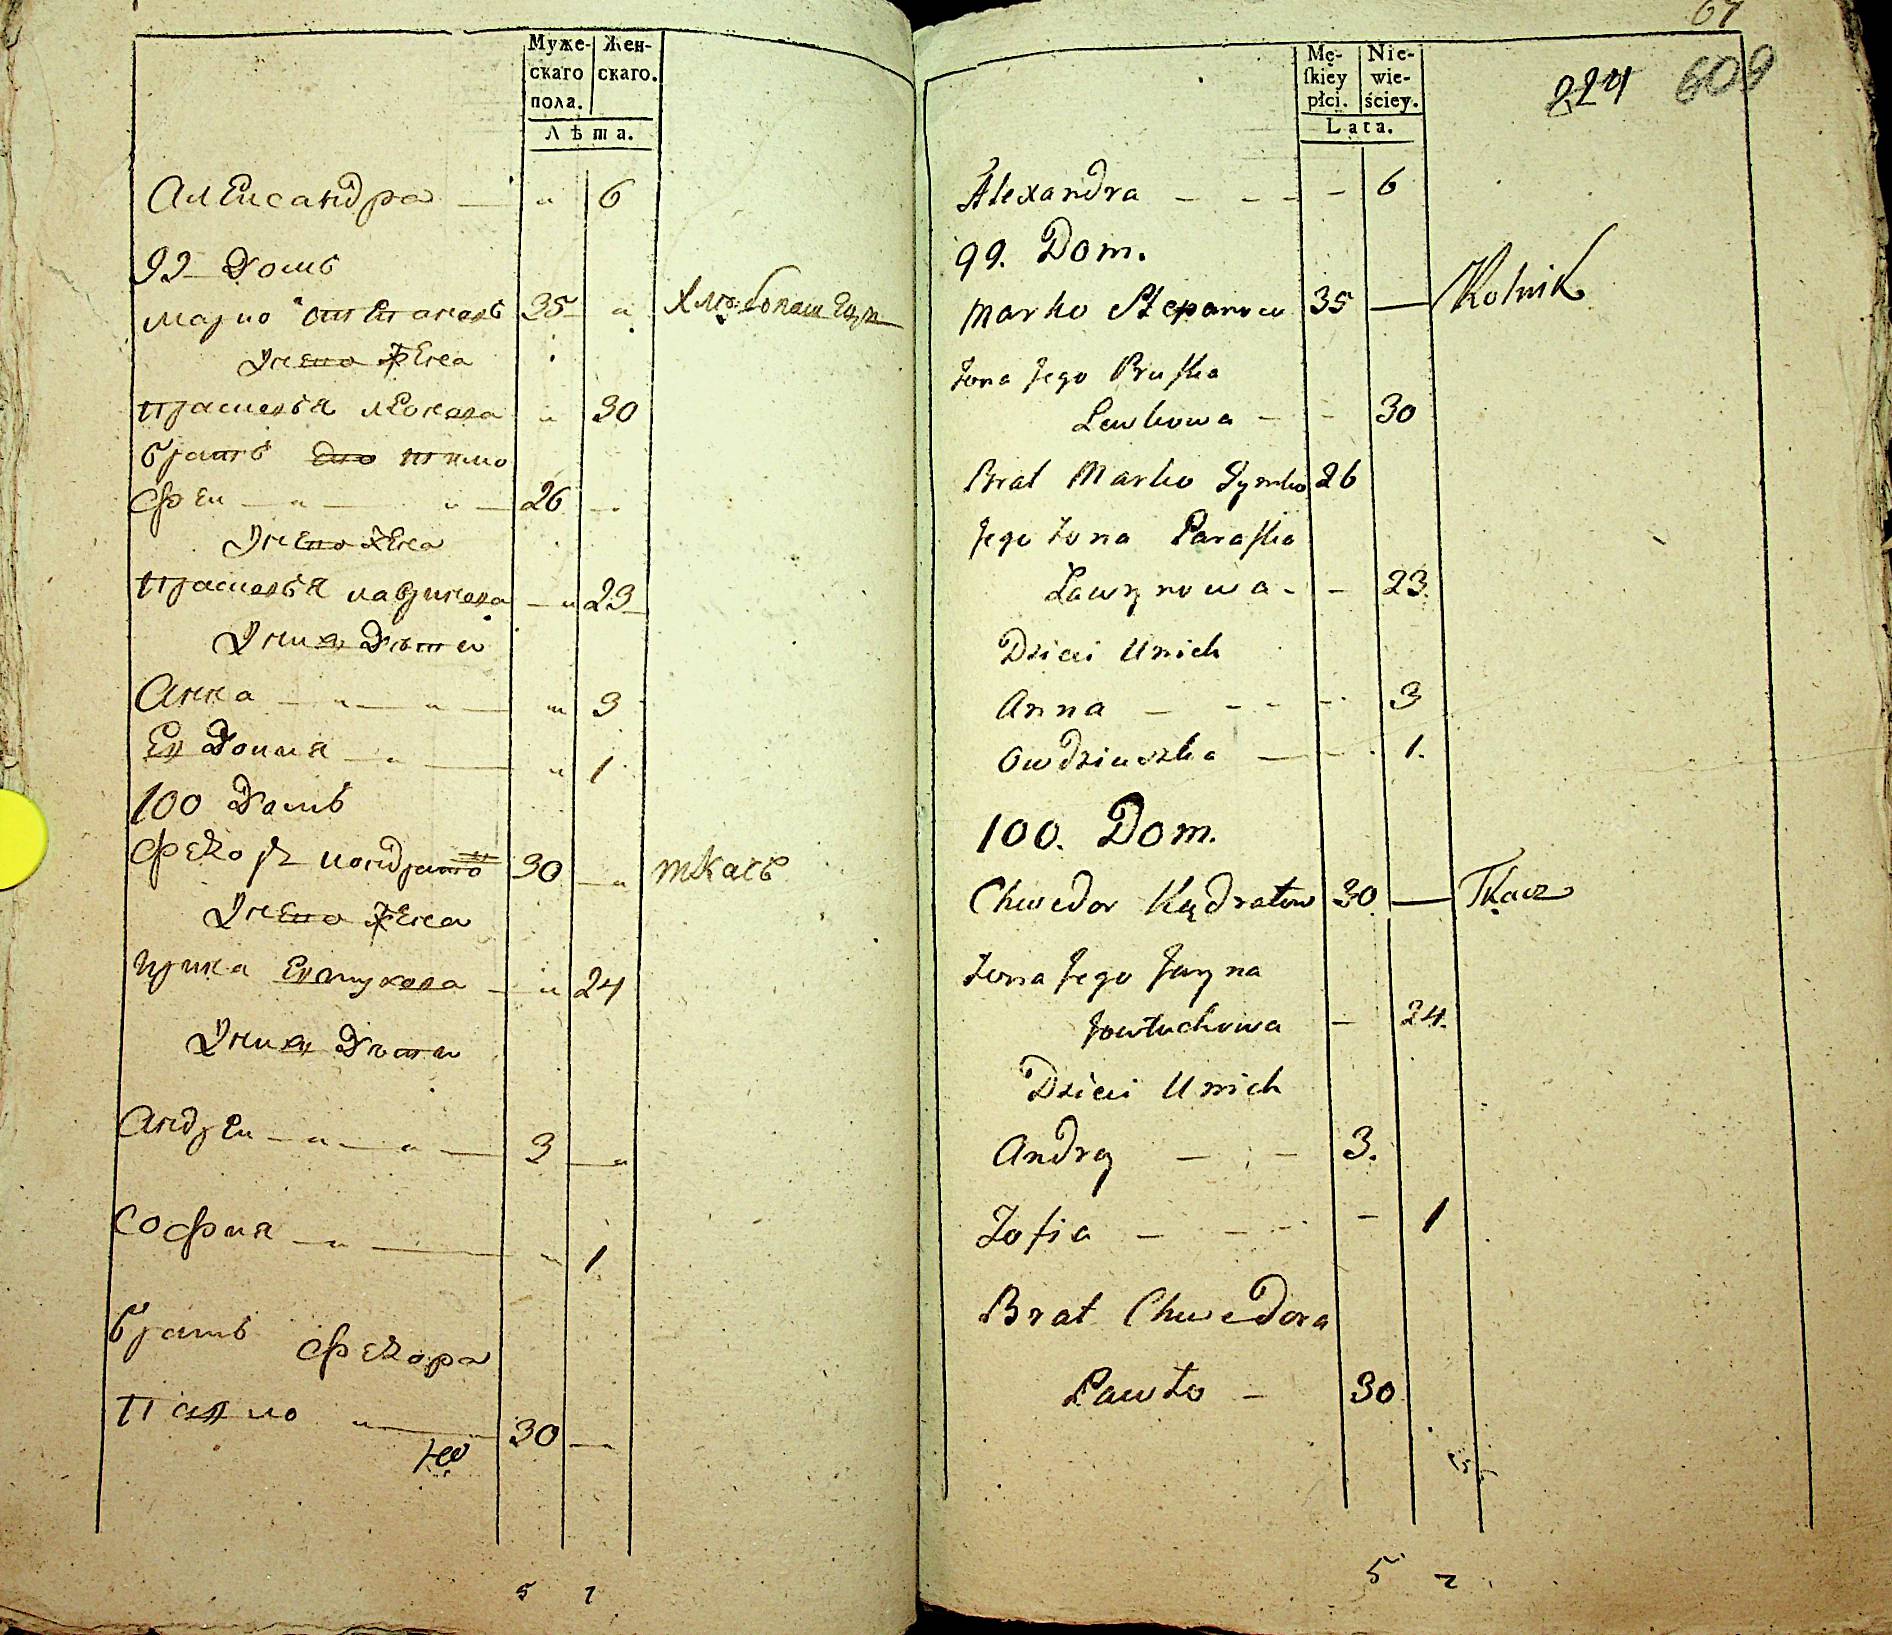 Муже- Жен-
скаго скаго.
пола.
Лѣта.
Александра — " 6
99 Домъ
Марко Степановъ 35 " Хлѣбопашецъ
У него жена
Прасковья Левкова " 30
братъ его Тимо
фей — " — " — 26 —
У него жена
Прасковья Лавринова — " 23
У них дѣти
Анна — " — " — " 3
Евдокия — " — " 1
100 Домъ
Федоръ Кондратов 30 — " ткачь
У него жена
Ирина Евтухова — " 24
У них дѣти
Андрей — " — " — 3 — "
София — " — " 1
братъ Федора
Павло " — 30 — "
5 7
67
Mę- Nie-
ſkiey wie-
płci. ściey.
Lata.
224 609
Alexandra — - - - 6
99. Dom.
Marko Stepanow 35 — Rolnik
Żona Jego Pruſka
Lewkowa - - 30
Brat Marko Tymko 26
Jego Żona Paraſka
Ławrynowa - - 23.
Dzieci U nich
Anna — - - - 3
Owdziuszka — - - 1.
100. Dom.
Chwedor Kądratow 30 — Tkacz
Żona Jego Jaryna
Jowtuchowa — 24.
Dzieci U nich
Andrey — - 3.
Zofia — - - - 1
Brat Chwedora
Pawło - 30
5 7